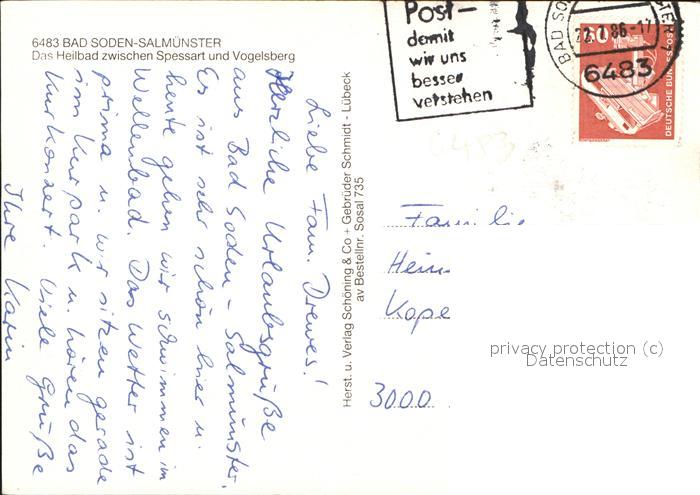 6483 BAD SODEN-SALMÜNSTER
Das Heilbad zwischen Spessart und Vogelsberg
Liebe Fam. Drewes!
Herzliche Urlaubsgrüße
aus Bad Soden-Salmünster.
Es ist sehr schön hier u.
heute gehen wir schwimmen im
Wellenbad. Das Wetter ist
prima u. wir sitzen gerade
im Kurpark u. hören das
Kurkonzert. Viele Grüße
Ihre Karin
Herst. u. Verlag Schöning & Co + Gebrüder Schmidt - Lübeck
av Bestellnr. Sosal 735
Post-
damit
wir uns
besser
verstehen
BAD SO
86-17
6483
DEUTSCHE BUNDESPOST
6483
Familie
Hein
Kope
3000
privacy protection (c)
Datenschutz